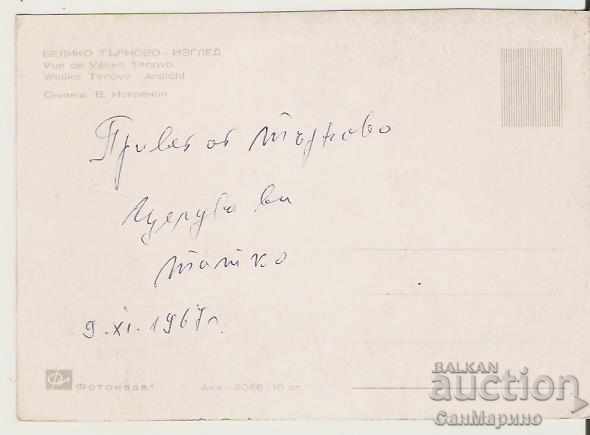 ВЕЛИКО ТЪРНОВО - ИЗГЛЕД
Vue de Veliko Tirnovo
Weliko Tirnovo - Ansicht
Снимка: В.
Привет от Търново
Целува ви
татко
9.XI.1967 г.
Фотоиздат
BALKAN
auction
СанМарино